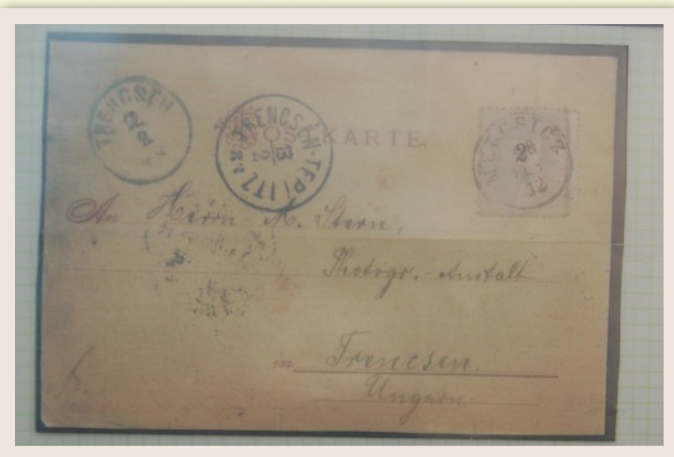 TRENCSEN
TRENCSÉN-TEPLITZ
13
2
POSTKARTE
An Herrn M. Stern,
Photogr. Anstalt
in Trencsen.
Ungarn